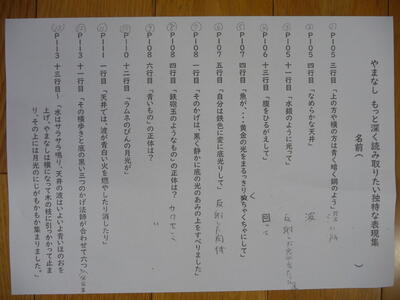 やまなし もっと深く読み取りたい独特な表現集
名前（　　　　）
P-105 三行目…「上の方や横の方は青く暗く鋼のよう」
P-105 四行目…「なめらかな天井」 波
P-105 十一行目…「水銀のように光って」
P-106 十三行目…「腹をひるがえして」 回って
P-107 四行目…「魚が、・・・黄金の光をまるっきりくちゃくちゃにして」
P-107 五行目…「自分は鉄色に変に底光りして」
P-108 一行目…「そのかげは、黒く静かに底の光のあみの上をすべりました」
P-108 四行目…「鉄砲玉のようなもの」の正体は？ かわせみ
P-108 六行目…「青いもの」の正体は？
P-110 十二行目…「ラムネのびんの月光が」
P-111 一行目…「天井では、波が青白い火を燃やしたり消したり」
P-113 十一行目…「その横歩きと底の黒い三つのかげ法師が合わせて六つ」
P-113 十三行目…「水はサラサラ鳴り、天井の波はいよいよ青いほのおを
上げ、やまなしは横になって木の枝に引っかかって止ま
り、その上には月光のにじがもかもか集まりました。」